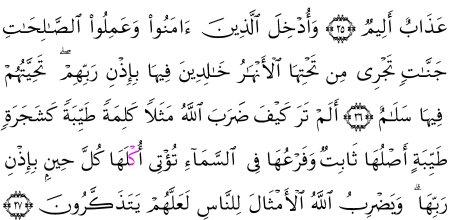 عَذَابٌ أَلِيمٌ ﴿٢٥﴾ وَأُدْخِلَ ٱلَّذِينَ ءَامَنُوا۟ وَعَمِلُوا۟ ٱلصَّـٰلِحَـٰتِ
جَنَّـٰتٍ تَجْرِى مِن تَحْتِهَا ٱلْأَنْهَـٰرُ خَـٰلِدِينَ فِيهَا بِإِذْنِ رَبِّهِمْ ۖ تَحِيَّتُهُمْ
فِيهَا سَلَـٰمٌ ﴿٢٦﴾ أَلَمْ تَرَ كَيْفَ ضَرَبَ ٱللَّهُ مَثَلًا كَلِمَةً طَيِّبَةً كَشَجَرَةٍ
طَيِّبَةٍ أَصْلُهَا ثَابِتٌ وَفَرْعُهَا فِى ٱلسَّمَآءِ تُؤْتِى أُكْلَهَا كُلَّ حِينٍۭ بِإِذْنِ
رَبِّهَا ۗ وَيَضْرِبُ ٱللَّهُ ٱلْأَمْثَالَ لِلنَّاسِ لَعَلَّهُمْ يَتَذَكَّرُونَ ﴿٢٧﴾